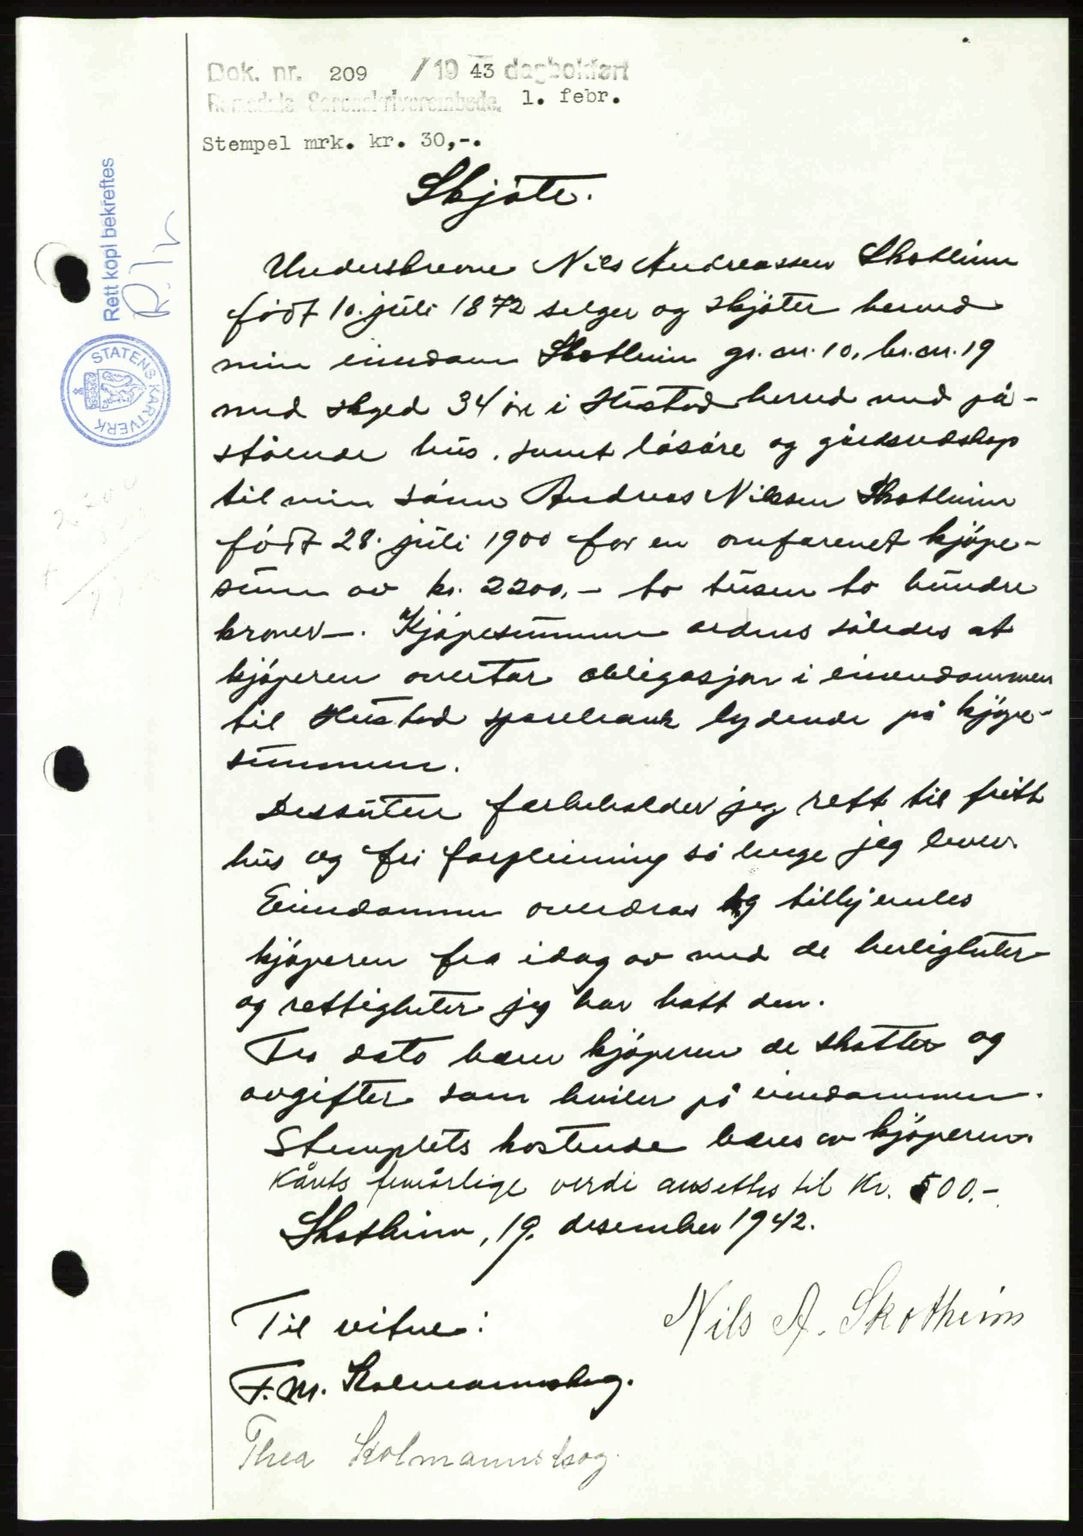 Dok. nr. 209 /1943 dagbokført
Romsdals Sorenskriverembede. 1. febr.
Stempel mrk. kr. 30,-.
Rett kopi bekreftes
STATENS KARTVERK
Skjøte.
Underskrevne Nils Andreassen Skotheim
født 10. juli 1872 selger og skjøter herved
min eiendom Skotheim gr.nr. 10, br.nr. 19
med skyld 34 øre i Hustad herred med på-
stående hus, samt løsøre og gårdsredskap
til min sønn Andreas Nilssen Skotheim
født 28. juli 1900 for en omforenet kjøpe-
sum av kr. 2200,- to tusen to hundre
kroner-. Kjøpesummen ordnes således at
kjøperen overtar obligasjon i eiendommen
til Hustad sparebank lydende på kjøpe-
summen.
Dessuten forbeholder jeg rett til fritt
hus og fri forpleining så lenge jeg lever.
Eiendommen overdras og tilhjemles
kjøperen fra idag av med de herligheter
og rettigheter jeg har hatt den.
Fra dato bærer kjøperen de skatter og
avgifter som hviler på eiendommen.
Stemplets kostende bæres av kjøperen.
Kårets femårlige verdi ansettes til Kr. 500.-
Skotheim, 19. desember 1942.
Nils A. Skotheim
Til vitne:
F. M. Kolmannskog.
Thea Kolmannskog.